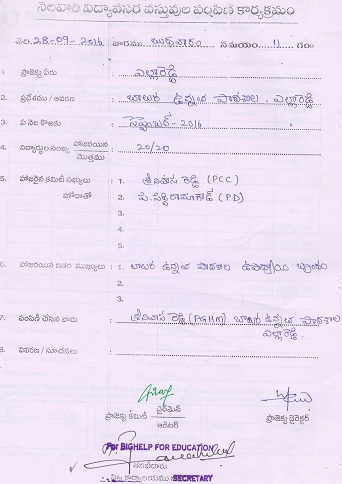 నెలవారీ విద్యావసర వస్తువుల పంపిణీ కార్యక్రమం
తేది 28-09-2016 వారము బుధవారం సమయం 11 గం
1. ప్రాజెక్టు పేరు : ఎల్లారెడ్డి
2. ప్రదేశము / ఆవరణ : బాలుర ఉన్నత పాఠశాల, ఎల్లారెడ్డి
3. ఏ నెల కొరకు : సెప్టెంబర్-2016
4. విద్యార్థుల సంఖ్య హాజరయిన / మొత్తము : 20/20
5. హాజరైన కమిటీ సభ్యులు : 1. శ్రీనివాస రెడ్డి (PCC)
హోదాతో 2. (PD)
3.
4.
5.
6. హాజరయిన ఇతర ముఖ్యులు : 1. బాలుర ఉన్నత పాఠశాల ఉపాధ్యాయ బృందం
2.
3.
7. పంపిణీ చేసిన వారు : శ్రీనివాస రెడ్డి (PGHM) బాలుర ఉన్నత పాఠశాల
ఎల్లారెడ్డి.
8. వివరణ / సూచనలు :
ప్రాజెక్టు కమిటీ చైర్‌మెన్ / ఆడిటర్
ప్రాజెక్టు డైరెక్టర్
For BIGHELP FOR EDUCATION
SECRETARY